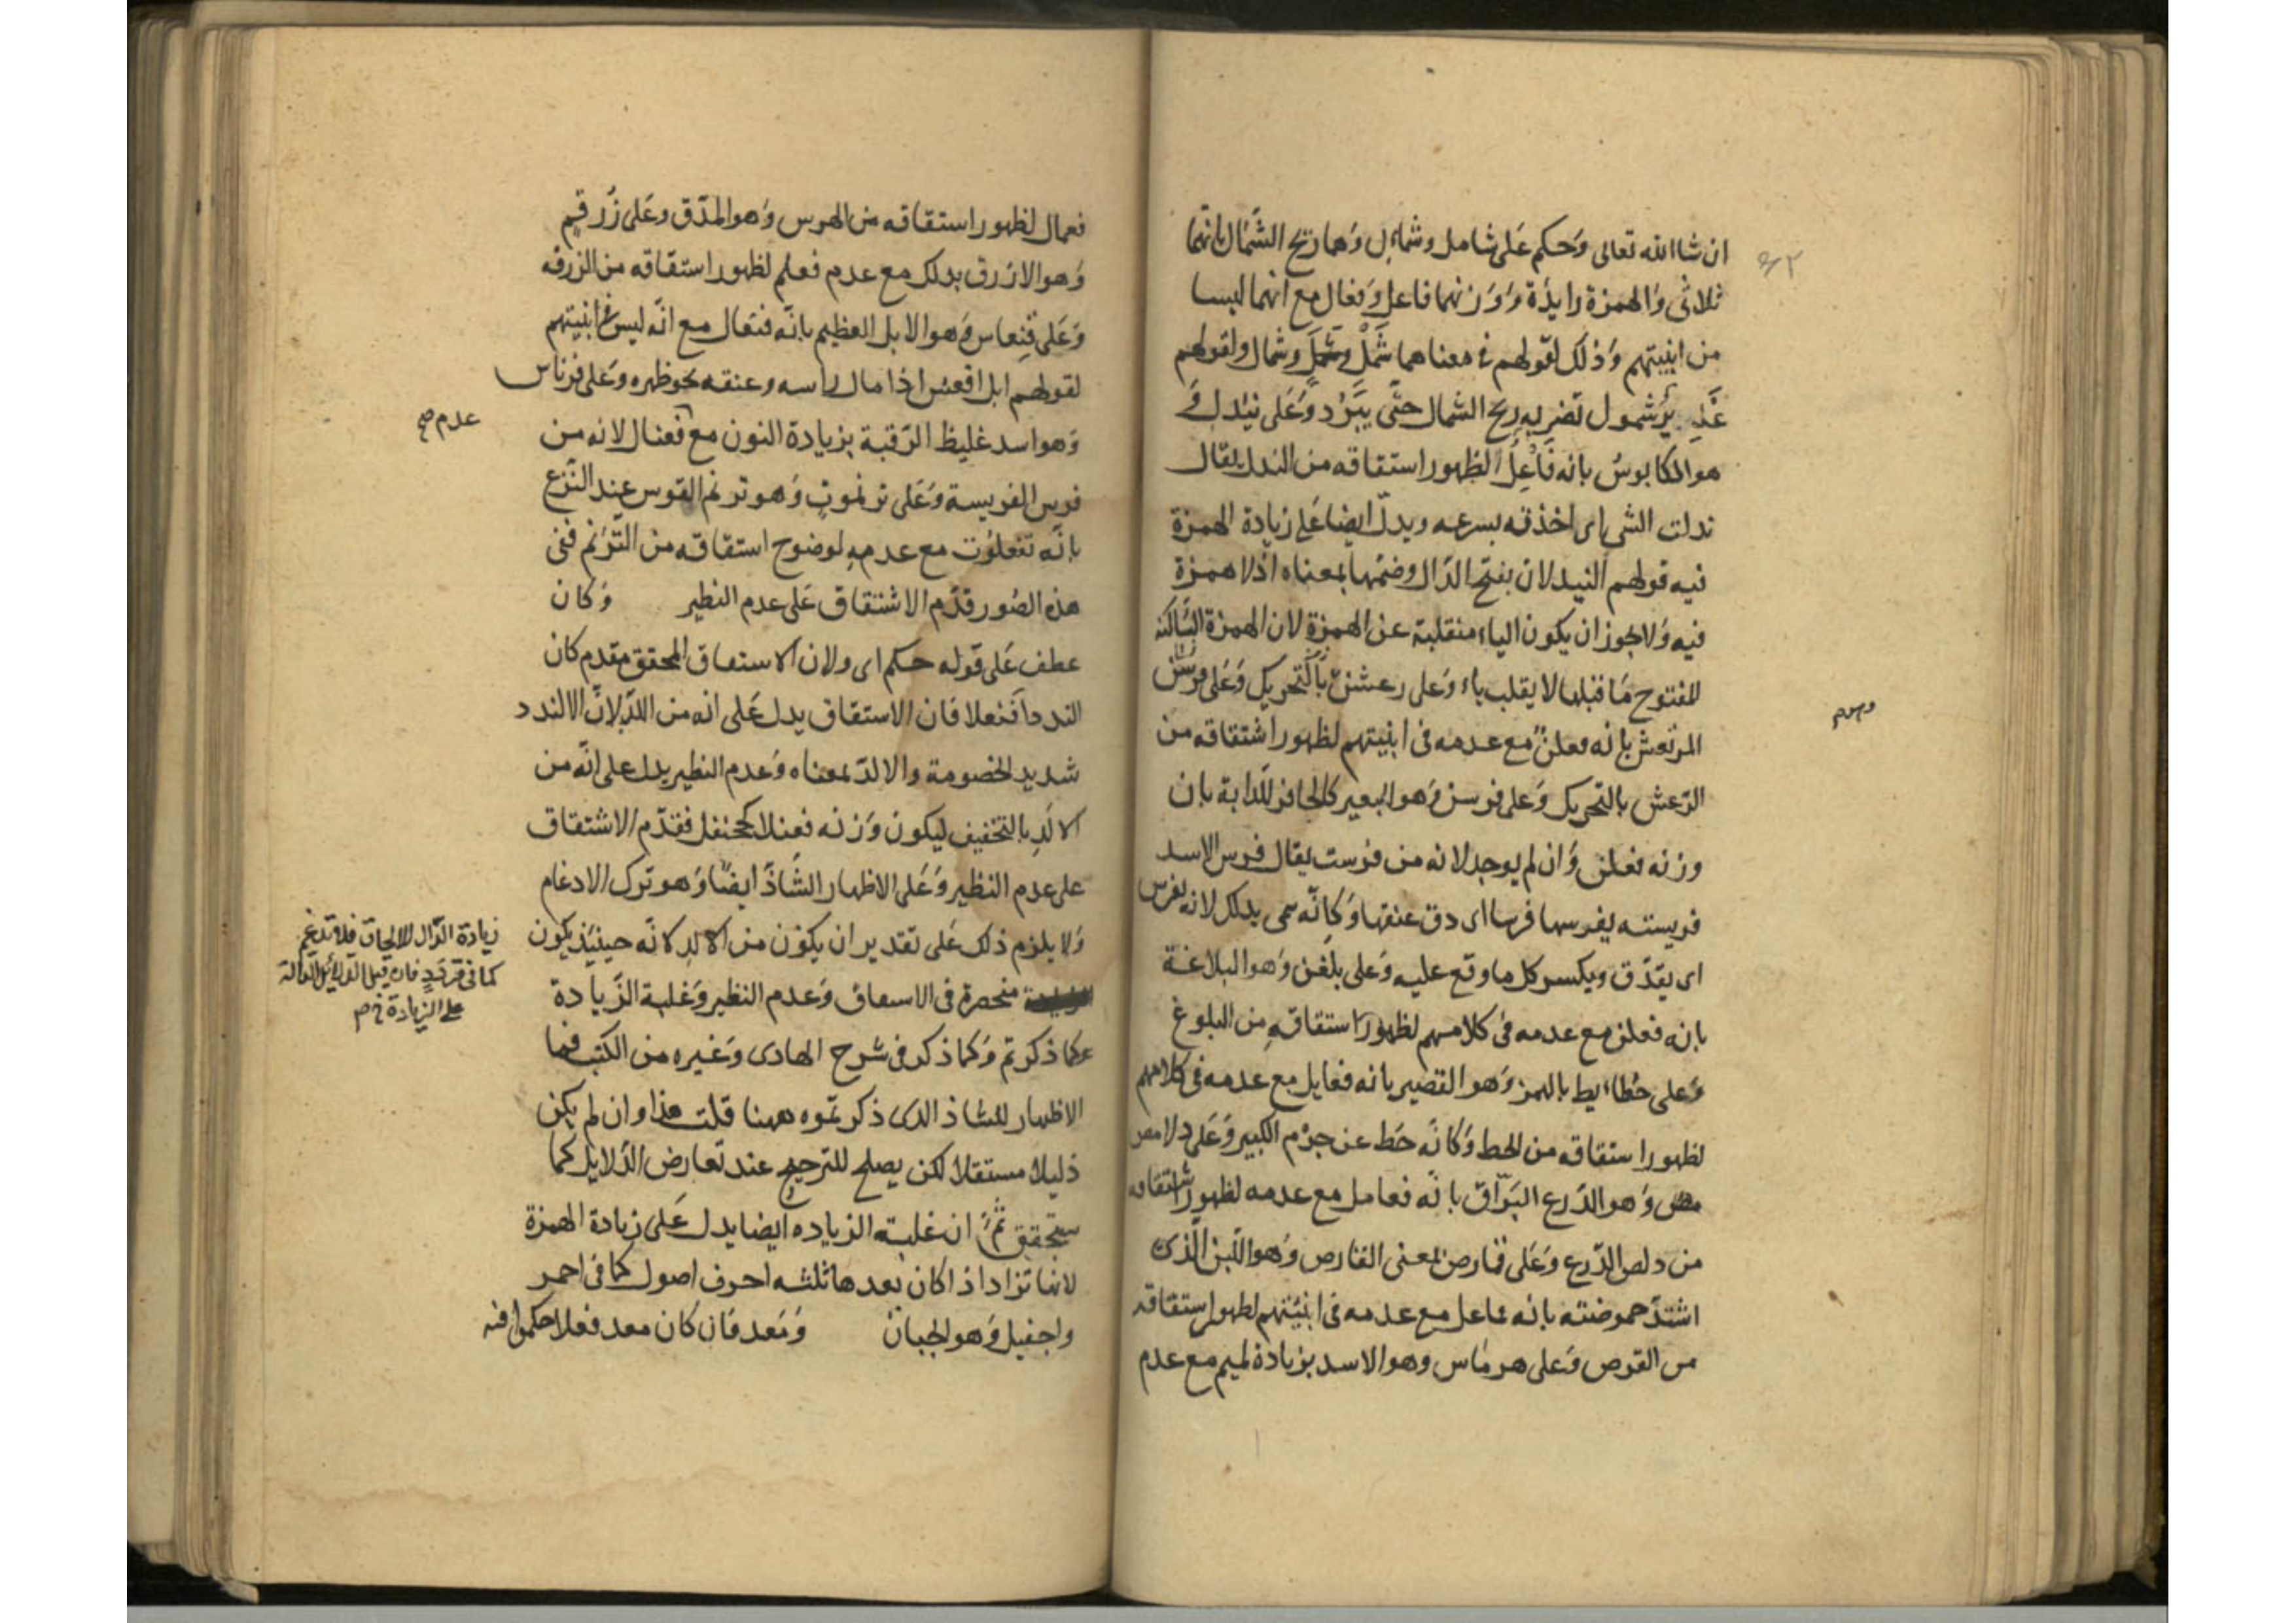 ان شا الله تعالى وَحكم عَلى شامل وشمايل وَهما ريح الشَّمال بانهما
ثلاثى وَالهمزة زايدة وَوَزنهما فاعل وَفعال مع انهما ليسا
من ابنيتهم وَذلك لقولهم فى معناهما شَمْلٌ وشَمَلٌ وشمال ولقولهم
غدير مشمول تضربه ريح الشمال حتّى يَبْرُد وَعَلى نئدل وَ
هو الكابوسُ بانه فَأْعِلُ لظهور استقاقه من الندل يقال
ندلت الشى اى اخذته بسرعه ويدلّ ايضا عَلى زيادة الهمزة
فيه قولهم النيدلان بفتح الدّال وضمّها بمعناه اذلا همزة
فيه وَلا يجوز ان يكون الياء منقلبة عن الهمزة لان الهمزة السّاكنه
المفتوح مَا قبلها لا يقلب ياء وَعلى رعشن بالتّحريك وَعَلى فرسن
المرتعش بانه فعلن مع عدمه فى ابنيتهم لظهور اشتقاقه من
الرّعش بالتحريك وَعلى فرسن وَهو البعير كالحافر للدّابة بان
وزنه فعلن وَان لم يوجد لانه من فرست يقال فرس الاسد
فريسته يفرسها فرسا اى دق عنقها وَكانّه سمى بذلك لانه يفرس
اى يَدّق ويكسر كل ما وقع عليه وَعلى بلغن وَهو البلاغة
بانه فعلن مع عدمه فى كلامهم لظهور استقاقه من البلوغ
وَعلى حُطايط بالهمز وَهو القصير بانه فعايل مع عدمه فى كلامهم
لظهور استقاقه من الحط وَكانه حَط عن جرْم الكبير وَعَلى دلامص
وَهو الدّرع البَرّاق بانّه فعامل مع عدمه لظهور اشتقاقه
من دلص الدّرع وَعَلى قمارص بمعنى القارص وَهو اللّبن الّذى
اشتدّ حموضته بانه فماعل مع عدمه فى ابنيتهم لظهور استقاقه
من القرص وَعلى هرماس وهو الاسد بزيادة لميم مع عدم
فعمال لظهور استقاقه من الهرس وَهو المدّق وعَلى زُرقم
وَهو الازرق بذلك مع عدم فعلم لظهور استقاقه من الزرقه
وَعَلى قِنعاس وَهو الابل العظيم بانّه فنعال مع انّه ليس فى ابنيتهم
لقولهم ابل اقعس اذا مال راسه وعنقه نحو ظهره وَعَلى فرناس
عدم صح
وَهو اسد غليظ الرّقبة بزيادة النون مع فعنال لانه من
فرس الفريسة وَعَلى ترنموت وَهو ترنم القوس عند النّزع
بانّه تفعلُوت مع عدمه لوضوح استقاقه من التّرنّم فى
هذه الصُور قدّم الاشتقاق عَلى عدم النظير وَكان
عطف عَلى قوله حكم اى ولان الاستقاق المحقق مقدم كان
الندد اَفَنعلا فان الاستقاق يدل عَلى انه من اللّدّ لانّ الالندد
شديد الخصومة والالدّ بمعناه وَعدم النظير يدل على انّه من
الالَدِ بالتخفيف ليكون وَزنه فعنلا كجحنفل فقدّم الاشتقاق
على عدم النظير وَعَلى الاظهار الشّاذّ ايضًا وَهو ترك الادغام
وَلا يلزم ذلك عَلى تقدير ان يكون من الالد لانّه حينئذ يكون
زيادة الدّال للالحاق فلا تدغم
كما فى قردد فان قيل الدلائل الدالة
على الزيادة
منحصرة فى الاستقاق وَعدم النظير وَغلبة الزّيادة
كما ذكرتم وَكما ذكر فى شرح الهادى وَغيره من الكتب فما
الاظهار للشاذ الذى ذكرتموه ههنا قلت هذا وان لم يكن
دليلا مستقلا لكن يصلح للترجيح عند تعارض الدّلايل كما
ستحقق ثمّ ان غلبة الزياده ايضا يدل عَلى زيادة الهمزة
لانها تزاد اذا كان بعدها ثلثه احرف اصول كما فى احمر
واجفيل وَهو الجبان وَمَعد فان كان معد فعلا